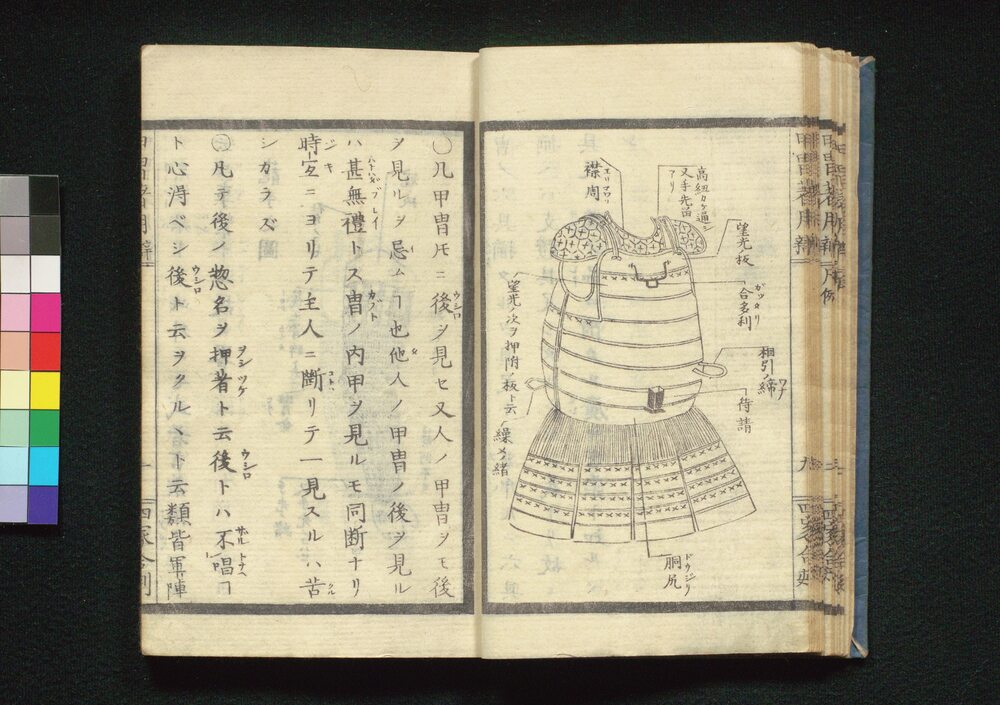 高紐カケ通シ
又手先笛
アリ
襟周
エリマワリ
望光板
合多利
ガッタリ
相引ノ締
ワナ
待請
胴尻
ドウジリ
望光ノ次ヲ押附ノ板ト云
繰メ緒
凡甲冑𪜈ニ後ヲ見セ又人ノ甲冑ヲモ後
ヲ見ルヲ忌ムヿ也他人ノ甲冑ノ後ヲ見ル
ハ甚無禮トス冑ノ内甲ヲ見ルモ同断ナリ
時宜ニヨリテ主人ニ斷リテ一見スルハ苦
シカラズ
凡テ後ノ惣名ヲ押着ト云後トハ不唱ヿ
ト心得ベシ後ト云ヲクルヽト云類皆軍陣
甲冑着用辨